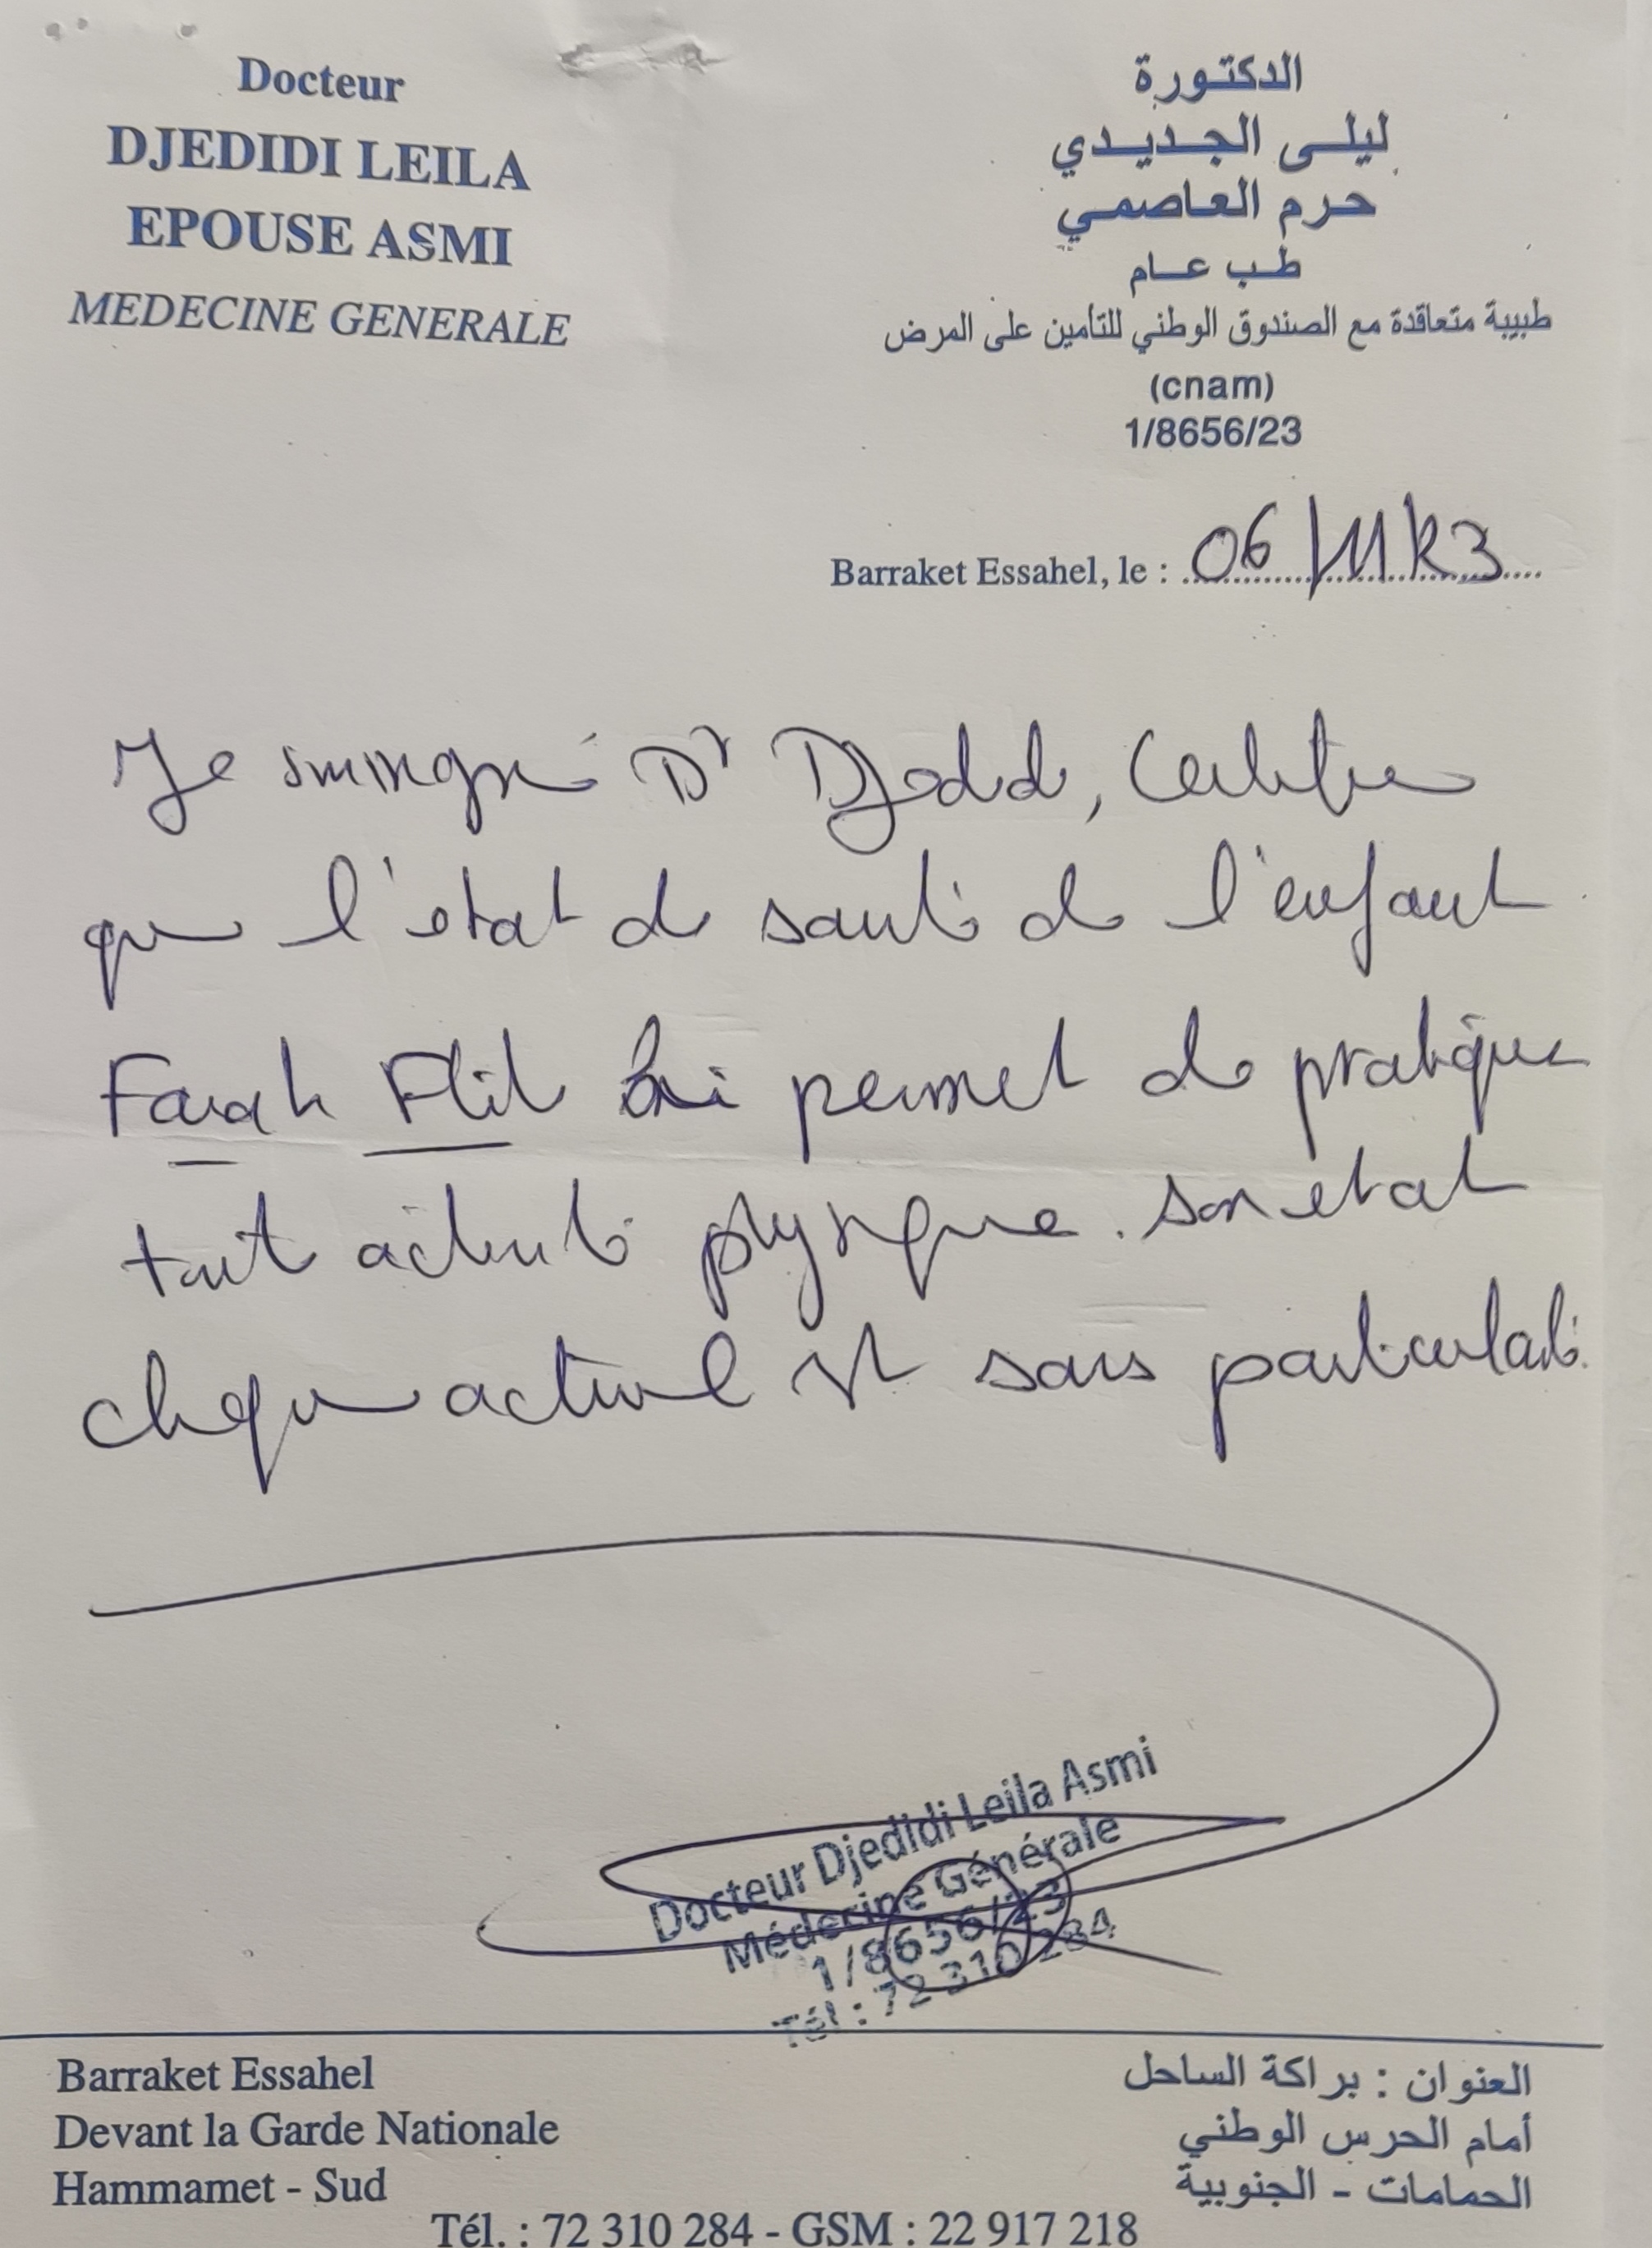 Docteur
DJEDIDI LEILA
EPOUSE ASMI
MEDECINE GENERALE
الدكتورة
ليلى الجديدي
حرم العاصمي
طب عام
طبيبة متعاقدة مع الصندوق الوطني للتأمين على المرض
(cnam)
1/8656/23
Barraket Essahel, le : 06
Je soussigné Dr Djedidi, Certifie
que l'état de santé de l'enfant
Farah lui permet de pratiquer
tout activité physique. son etat
clinique actuel est sans particularité.
Docteur Djedidi Leila Asmi
Médecine Générale
1/8656/23
Tél : 72 310 284
Barraket Essahel
Devant la Garde Nationale
Hammamet - Sud
العنوان : براكة الساحل
أمام الحرس الوطني
الحمامات - الجنوبية
Tél. : 72 310 284 - GSM : 22 917 218